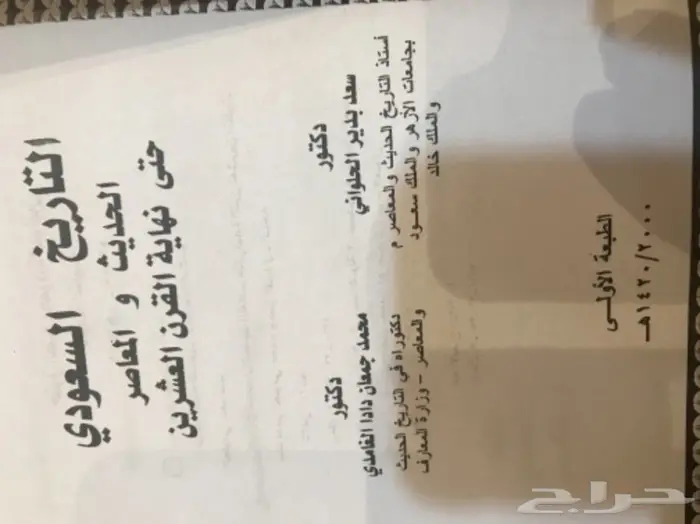 التاريخ السعودي
الحديث و المعاصر
حتى نهاية القرن العشرين
دكتور
سعد بدير الحلواني
أستاذ التاريخ الحديث والمعاصر م
بجامعات الأزهر والملك سعود
والملك خالد
دكتور
محمد جمعان دادا الغامدي
دكتوراه في التاريخ الحديث
والمعاصر - وزارة المعارف
الطبعة الأولى
٢٠٠٠/١٤٢٠هـ
حراج